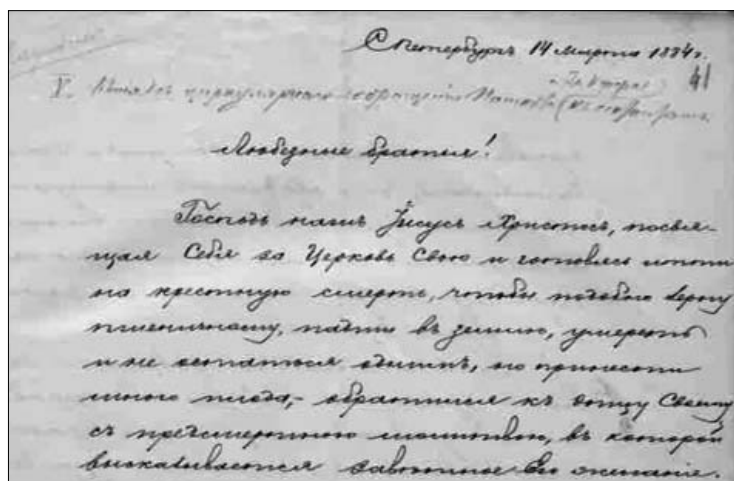 С Петербургъ 14 Марта 1884 г.
41
V. циркулярнаго обращенія Пашкова
Любезные братья!
Господь нашъ Іисусъ Христосъ, посвя-
щая Себя за Церковь Свою и готовясь итти
на крестную смерть, чтобы подобно зерну
пшеничному, падти въ землю, умереть
и не остаться однимъ, но принести
много плода, – обратился къ Отцу Своему
съ предсмертною молитвою, въ которой
высказывается завѣтное Его желаніе.